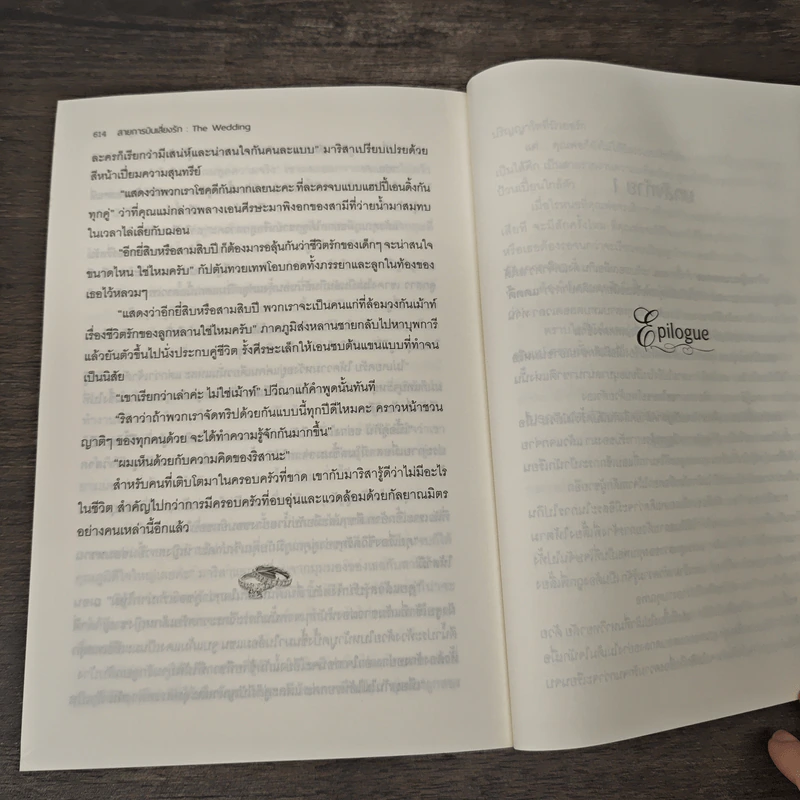 614 สายการบินเสี่ยงรัก : The Wedding
ละครก็เรียกว่ามีเสน่ห์และน่าสนใจกันคนละแบบ” มาริสาเปรียบเปรยด้วย
สีหน้าเปี่ยมความสุนทรีย์
“แสดงว่าพวกเราโชคดีกันมากเลยนะคะ ที่ละครจบแบบแฮปปี้เอนดิ้งกัน
ทุกคู่” ว่าที่คุณแม่กล่าวพลางเอนศีรษะมาพิงอกของสามีที่ว่ายน้ำมาสมทบ
ในเวลาไล่เลี่ยกับฌอน
“อีกยี่สิบหรือสามสิบปี ก็ต้องมารอลุ้นกันว่าชีวิตรักของเด็กๆ จะน่าสนใจ
ขนาดไหน ใช่ไหมครับ” กัปตันทวยเทพโอบกอดทั้งภรรยาและลูกในท้องของ
เธอไว้หลวมๆ
“แสดงว่าอีกยี่สิบหรือสามสิบปี พวกเราจะเป็นคนแก่ที่ล้อมวงกันเม้าท์
เรื่องชีวิตรักของลูกหลานใช่ไหมครับ” ภาคภูมิส่งหลานชายกลับไปหาบุพการี
แล้วยันตัวขึ้นไปนั่งประกบคู่ชีวิต รั้งศีรษะเล็กให้เอนซบต้นแขนแบบที่ทำจน
เป็นนิสัย
“เขาเรียกว่าเล่าค่ะ ไม่ใช่เม้าท์” ปวีณาแก้คำพูดนั้นทันที
“ริสาว่าถ้าพวกเราจัดทริปด้วยกันแบบนี้ทุกปีดีไหมคะ คราวหน้าชวน
ญาติๆ ของทุกคนด้วย จะได้ทำความรู้จักกันมากขึ้น”
“ผมเห็นด้วยกับความคิดของริสานะ”
สำหรับคนที่เติบโตมาในครอบครัวที่ขาด เขากับมาริสารู้ดีว่าไม่มีอะไร
ในชีวิต สำคัญไปกว่าการมีครอบครัวที่อบอุ่นและแวดล้อมด้วยกัลยาณมิตร
อย่างคนเหล่านี้อีกแล้ว
Epilogue